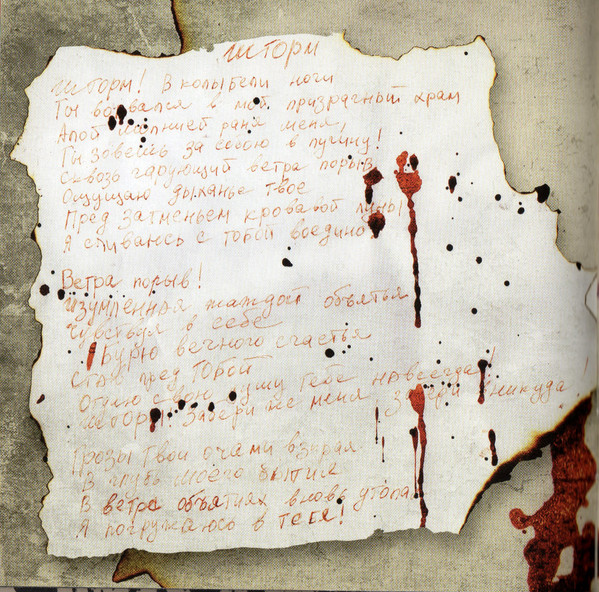 Шторм
Шторм! В колыбели ночи
Ты ворвался в мой призрачный храм
Алой молнией раня меня,
Ты зовёшь за собою в пучину!
Сквозь чарующий ветра порыв
Ощущаю дыханье твоё
Пред затменьем кровавой луны
Я сливаюсь с тобой воедино.
Ветра порыв!
Изумлённая жаждой объятья
Чувствуя в себе
Бурю вечного счастья
Стою пред тобой
Отдаю свою душу тебе навсегда!
Шторм! Забери же меня, забери в никуда
Грозы твои очами взирая
В глубь моего бытия
В ветра объятиях вновь утопая
Я погружаюсь в тебя!